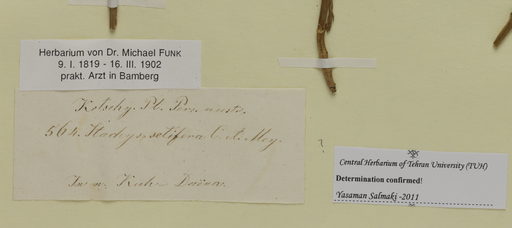 Herbarium von Dr. Michael FUNK
9. I. 1819 - 16. III. 1902
prakt. Arzt in Bamberg
Kotschy. Pl. Pers. austr.
564. Stachys setifera C. A. Mey.
In m. Kuh
Central Herbarium of Tehran University (TUH)
Determination confirmed!
Yasaman Salmaki -2011